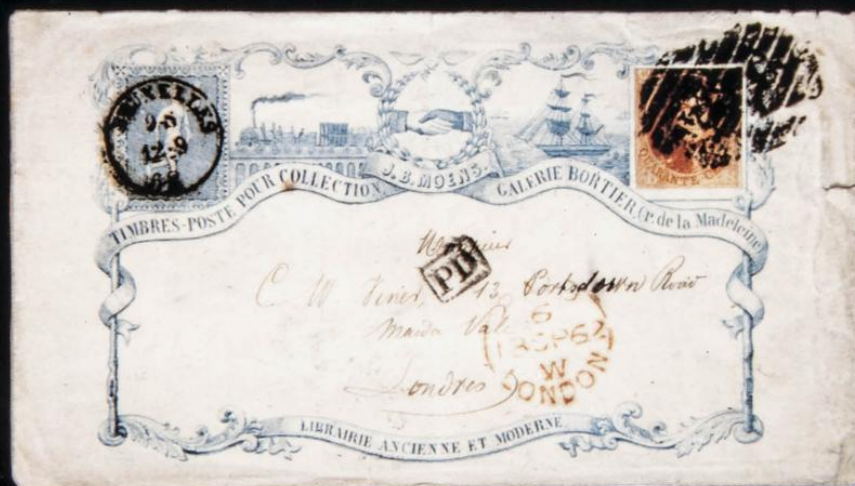 BRUXELLES
12-9
QUARANTE C
J. B. MOENS.
TIMBRES-POSTE POUR COLLECTION GALERIE BORTIER, (r. de la Madeleine)
Monsieur
PD
C W 13, Portsdown Road
Maida Vale
Londres
6
SP62
W
LONDON
LIBRAIRIE ANCIENNE ET MODERNE